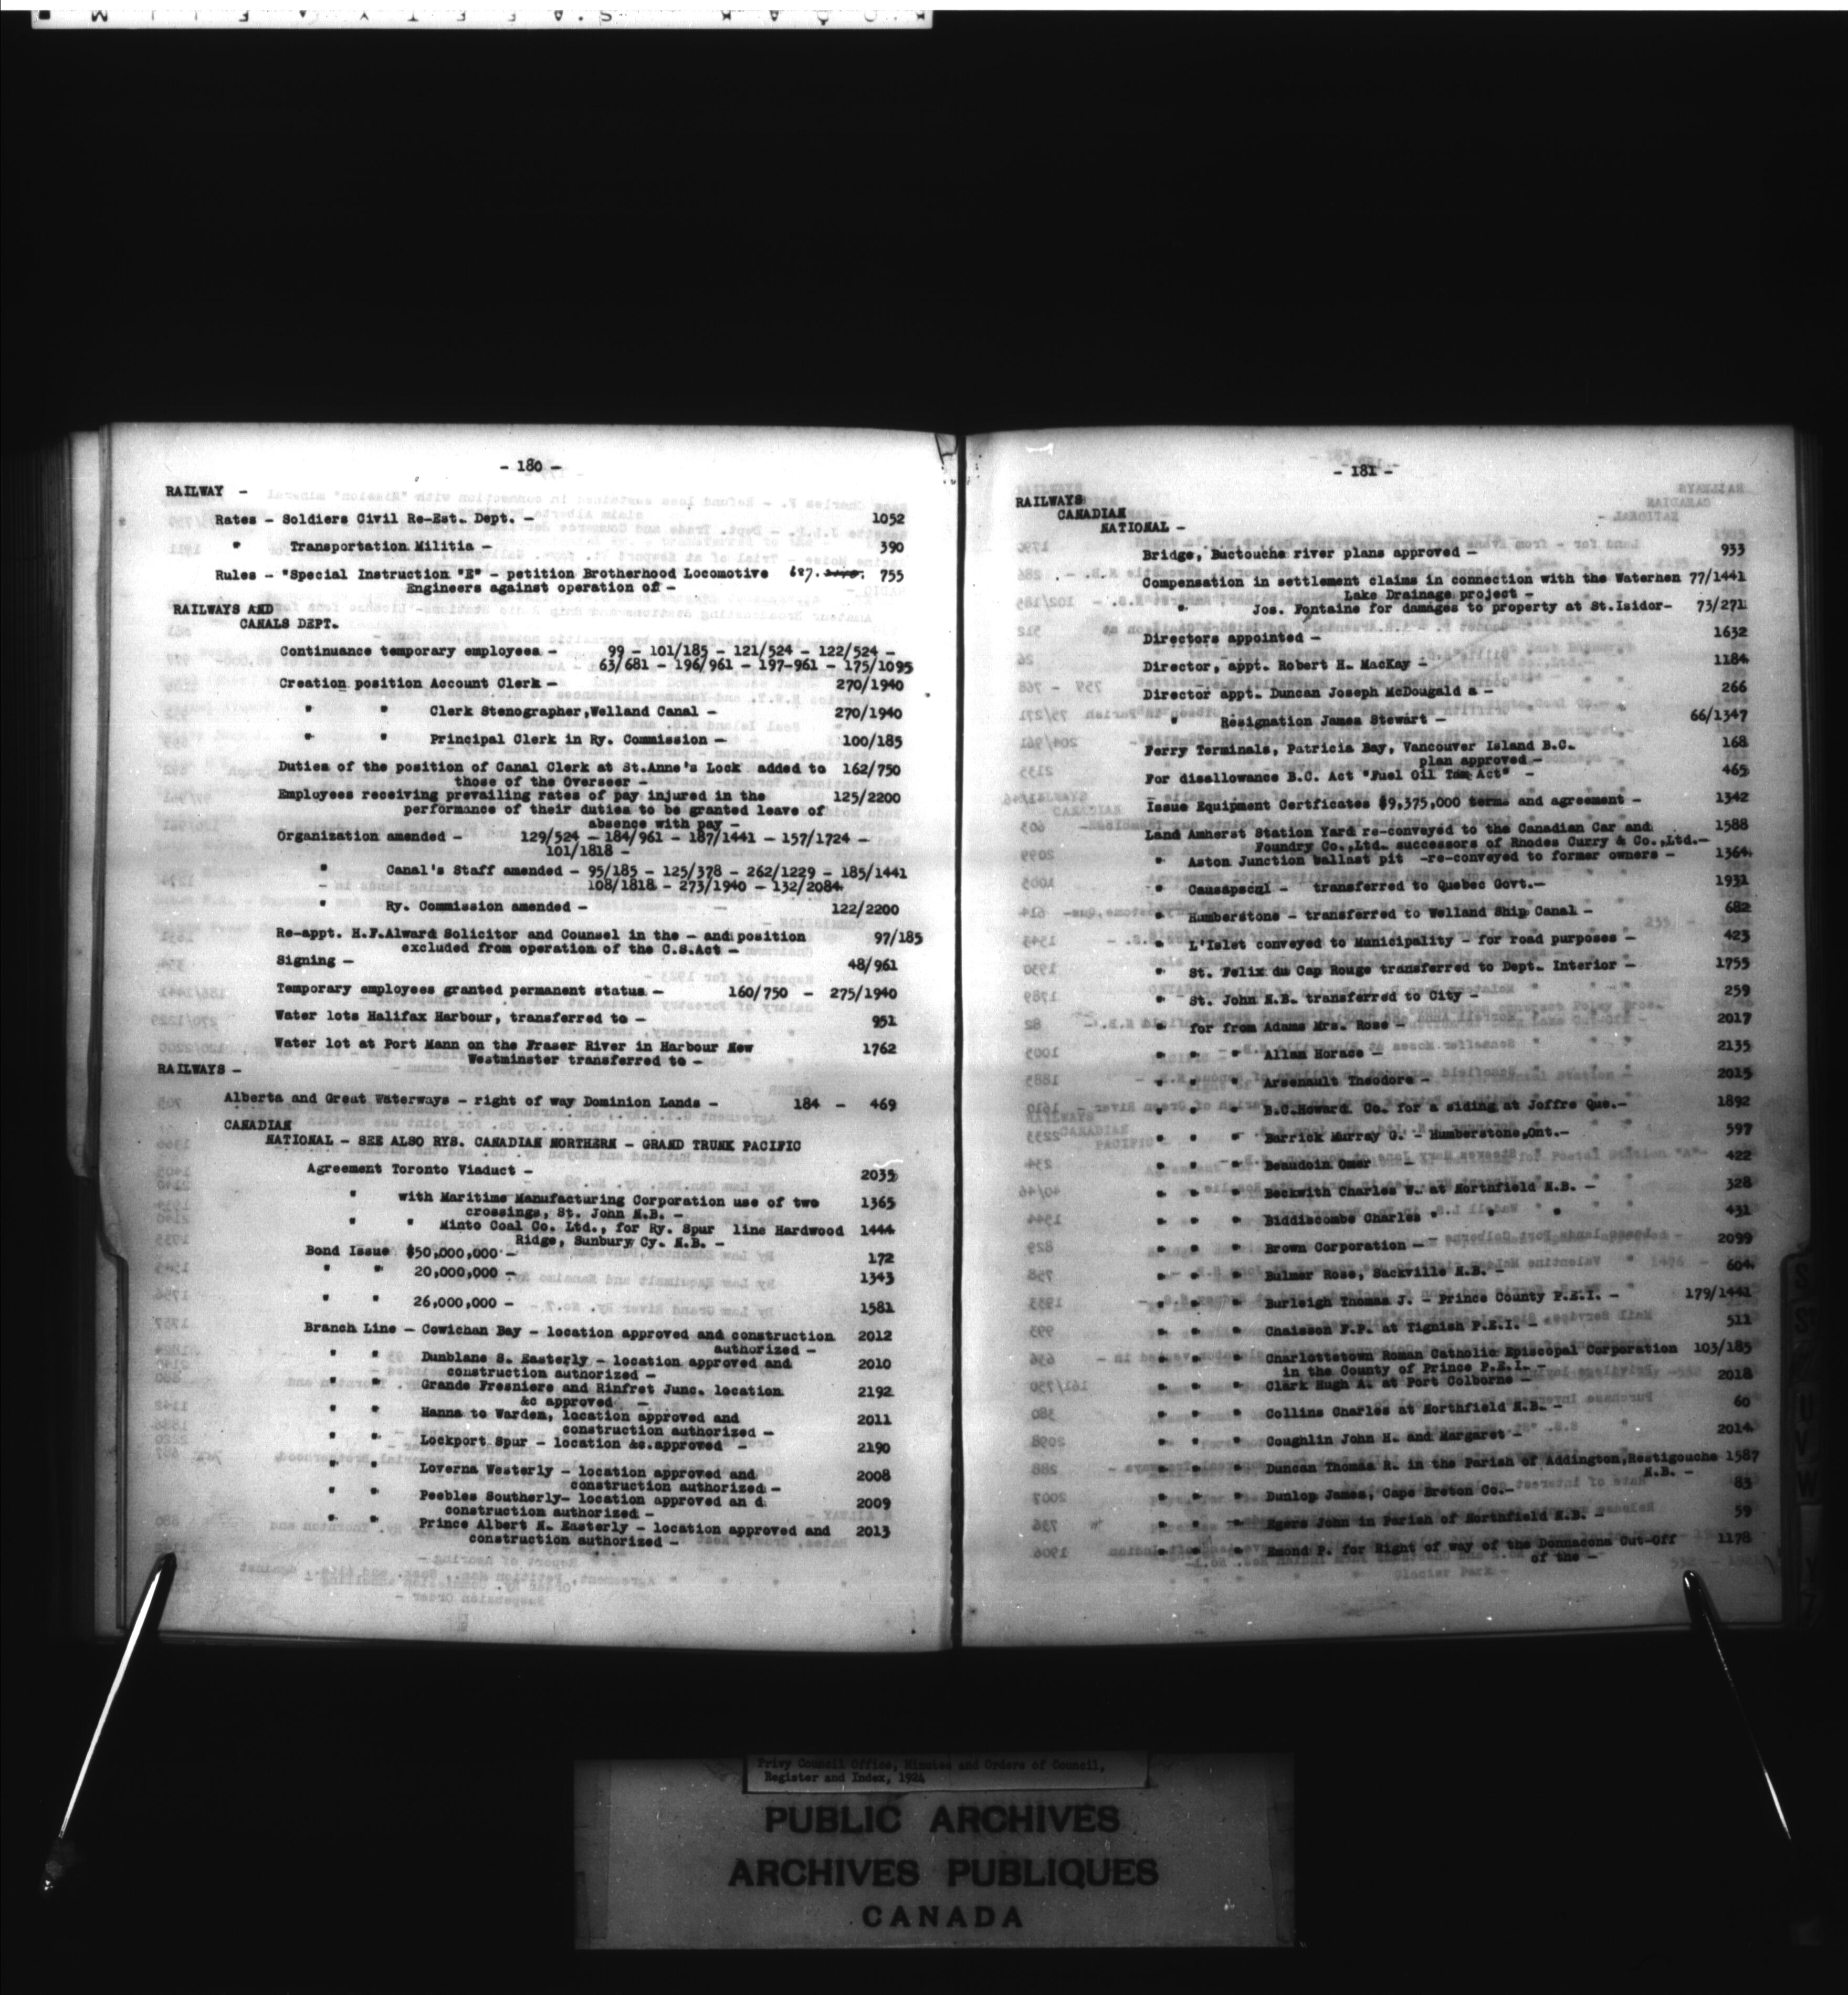 - 180 -
RAILWAY -
Rates - Soldiers Civil Re-Est. Dept. - 1052
" Transportation Militia - 390
Rules - "Special Instruction "E" - petition Brotherhood Locomotive 687. 755
Engineers against operation of -
RAILWAYS AND
CANALS DEPT.
Continuance temporary employees - 99 - 101/185 - 121/524 - 122/524 -
63/681 - 196/961 - 197-961 - 175/1095
Creation position Account Clerk - 270/1940
" " Clerk Stenographer,Welland Canal - 270/1940
" " Principal Clerk in Ry. Commission - 100/185
Duties of the position of Canal Clerk at St.Anne's Lock added to 162/750
those of the Overseer -
Employees receiving prevailing rates of pay injured in the 125/2200
performance of their duties to be granted leave of
absence with pay -
Organization amended - 129/524 - 184/961 - 187/1441 - 157/1724 -
101/1818 -
" Canal's Staff amended - 95/185 - 125/378 - 262/1229 - 185/1441
108/1818 - 273/1940 - 132/2084
" Ry. Commission amended - 122/2200
Re-appt. H.F.Alward Solicitor and Counsel in the - and position 97/185
excluded from operation of the C.S.Act -
Signing - 48/961
Temporary employees granted permanent status - 160/750 - 275/1940
Water lots Halifax Harbour, transferred to - 951
Water lot at Port Mann on the Fraser River in Harbour New 1762
Westminster transferred to -
RAILWAYS -
Alberta and Great Waterways - right of way Dominion Lands - 184 - 469
CANADIAN
NATIONAL - SEE ALSO RYS. CANADIAN NORTHERN - GRAND TRUNK PACIFIC
Agreement Toronto Viaduct - 2035
" with Maritime Manufacturing Corporation use of two 1365
crossings, St. John N.B. -
" " Minto Coal Co. Ltd., for Ry. Spur line Hardwood 1444
Ridge, Sunbury Cy. N.B. -
Bond Issue $50,000,000 - 172
" " 20,000,000 - 1343
" " 26,000,000 - 1581
Branch Line - Cowichan Bay - location approved and construction 2012
authorized -
" " Dunblane S. Easterly - location approved and 2010
construction authorized -
" " Grande Fresniere and Rinfret Junc. location 2192
&c approved -
" " Hanna to Warden, location approved and 2011
construction authorized -
" " Lockport Spur - location &c.approved - 2190
" " Loverna Westerly - location approved and 2008
construction authorized -
" " Peebles Southerly- location approved an d 2009
construction authorized -
" " Prince Albert N. Easterly - location approved and 2013
construction authorized -
- 181 -
RAILWAYS
CANADIAN
NATIONAL -
Bridge, Buctouche river plans approved - 933
Compensation in settlement claims in connection with the Waterhen 77/1441
Lake Drainage project -
" Jos. Fontaine for damages to property at St.Isidor- 73/271
Directors appointed - 1632
Director, appt. Robert H. MacKay - 1184
Director appt. Duncan Joseph McDougald a - 266
" Resignation James Stewart - 66/1347
Ferry Terminals, Patricia Bay, Vancouver Island B.C. 168
plan approved -
For disallowance B.C. Act "Fuel Oil Tax Act" - 465
Issue Equipment Certficates $9,375,000 terms and agreement - 1342
Land Amherst Station Yard re-conveyed to the Canadian Car and 1588
Foundry Co.,Ltd. successors of Rhodes Curry & Co.,Ltd.-
" Aston Junction ballast pit -re-conveyed to former owners - 1364
" Causapscal - transferred to Quebec Govt.- 1931
" Humberstone - transferred to Welland Ship Canal - 682
" L'Islet conveyed to Municipality - for road purposes - 423
" St. Felix du Cap Rouge transferred to Dept. Interior - 1755
" St. John N.B. transferred to City - 259
" for from Adams Mrs. Rose - 2017
" " " Allan Horace - 2135
" " " Arsenault Theodore - 2015
" " " B.C.Howard Co. for a siding at Joffre Que.- 1892
" " " Barrick Murray G. - Humberstone,Ont.- 597
" " " Beaudoin Omer - 422
" " " Beckwith Charles W. at Northfield N.B. - 328
" " " Biddiscombe Charles " " " 431
" " " Brown Corporation - 2099
" " " Bulmer Rose, Sackville N.B. - 604
" " " Burleigh Thomas J. - Prince County P.E.I. - 179/1441
" " " Chaisson F.P. at Tignish P.E.I. - 511
" " " Charlottetown Roman Catholic Episcopal Corporation 103/185
in the County of Prince P.E.I. -
" " " Clark Hugh A. at Port Colborne - 2018
" " " Collins Charles at Northfield N.B. - 60
" " " Coughlin John H. and Margaret - 2014
" " " Duncan Thomas R. in the Parish of Addington,Restigouche 1587
N.B. -
" " " Dunlop James, Cape Breton Co.- 83
" " " Egers John in Parish of Northfield N.B. - 59
" " " Emond P. for Right of way of the Donnacona Cut-Off 1178
of the -
Privy Council Office, Minutes and Orders of Council,
Register and Index, 1924
PUBLIC ARCHIVES
ARCHIVES PUBLIQUES
CANADA